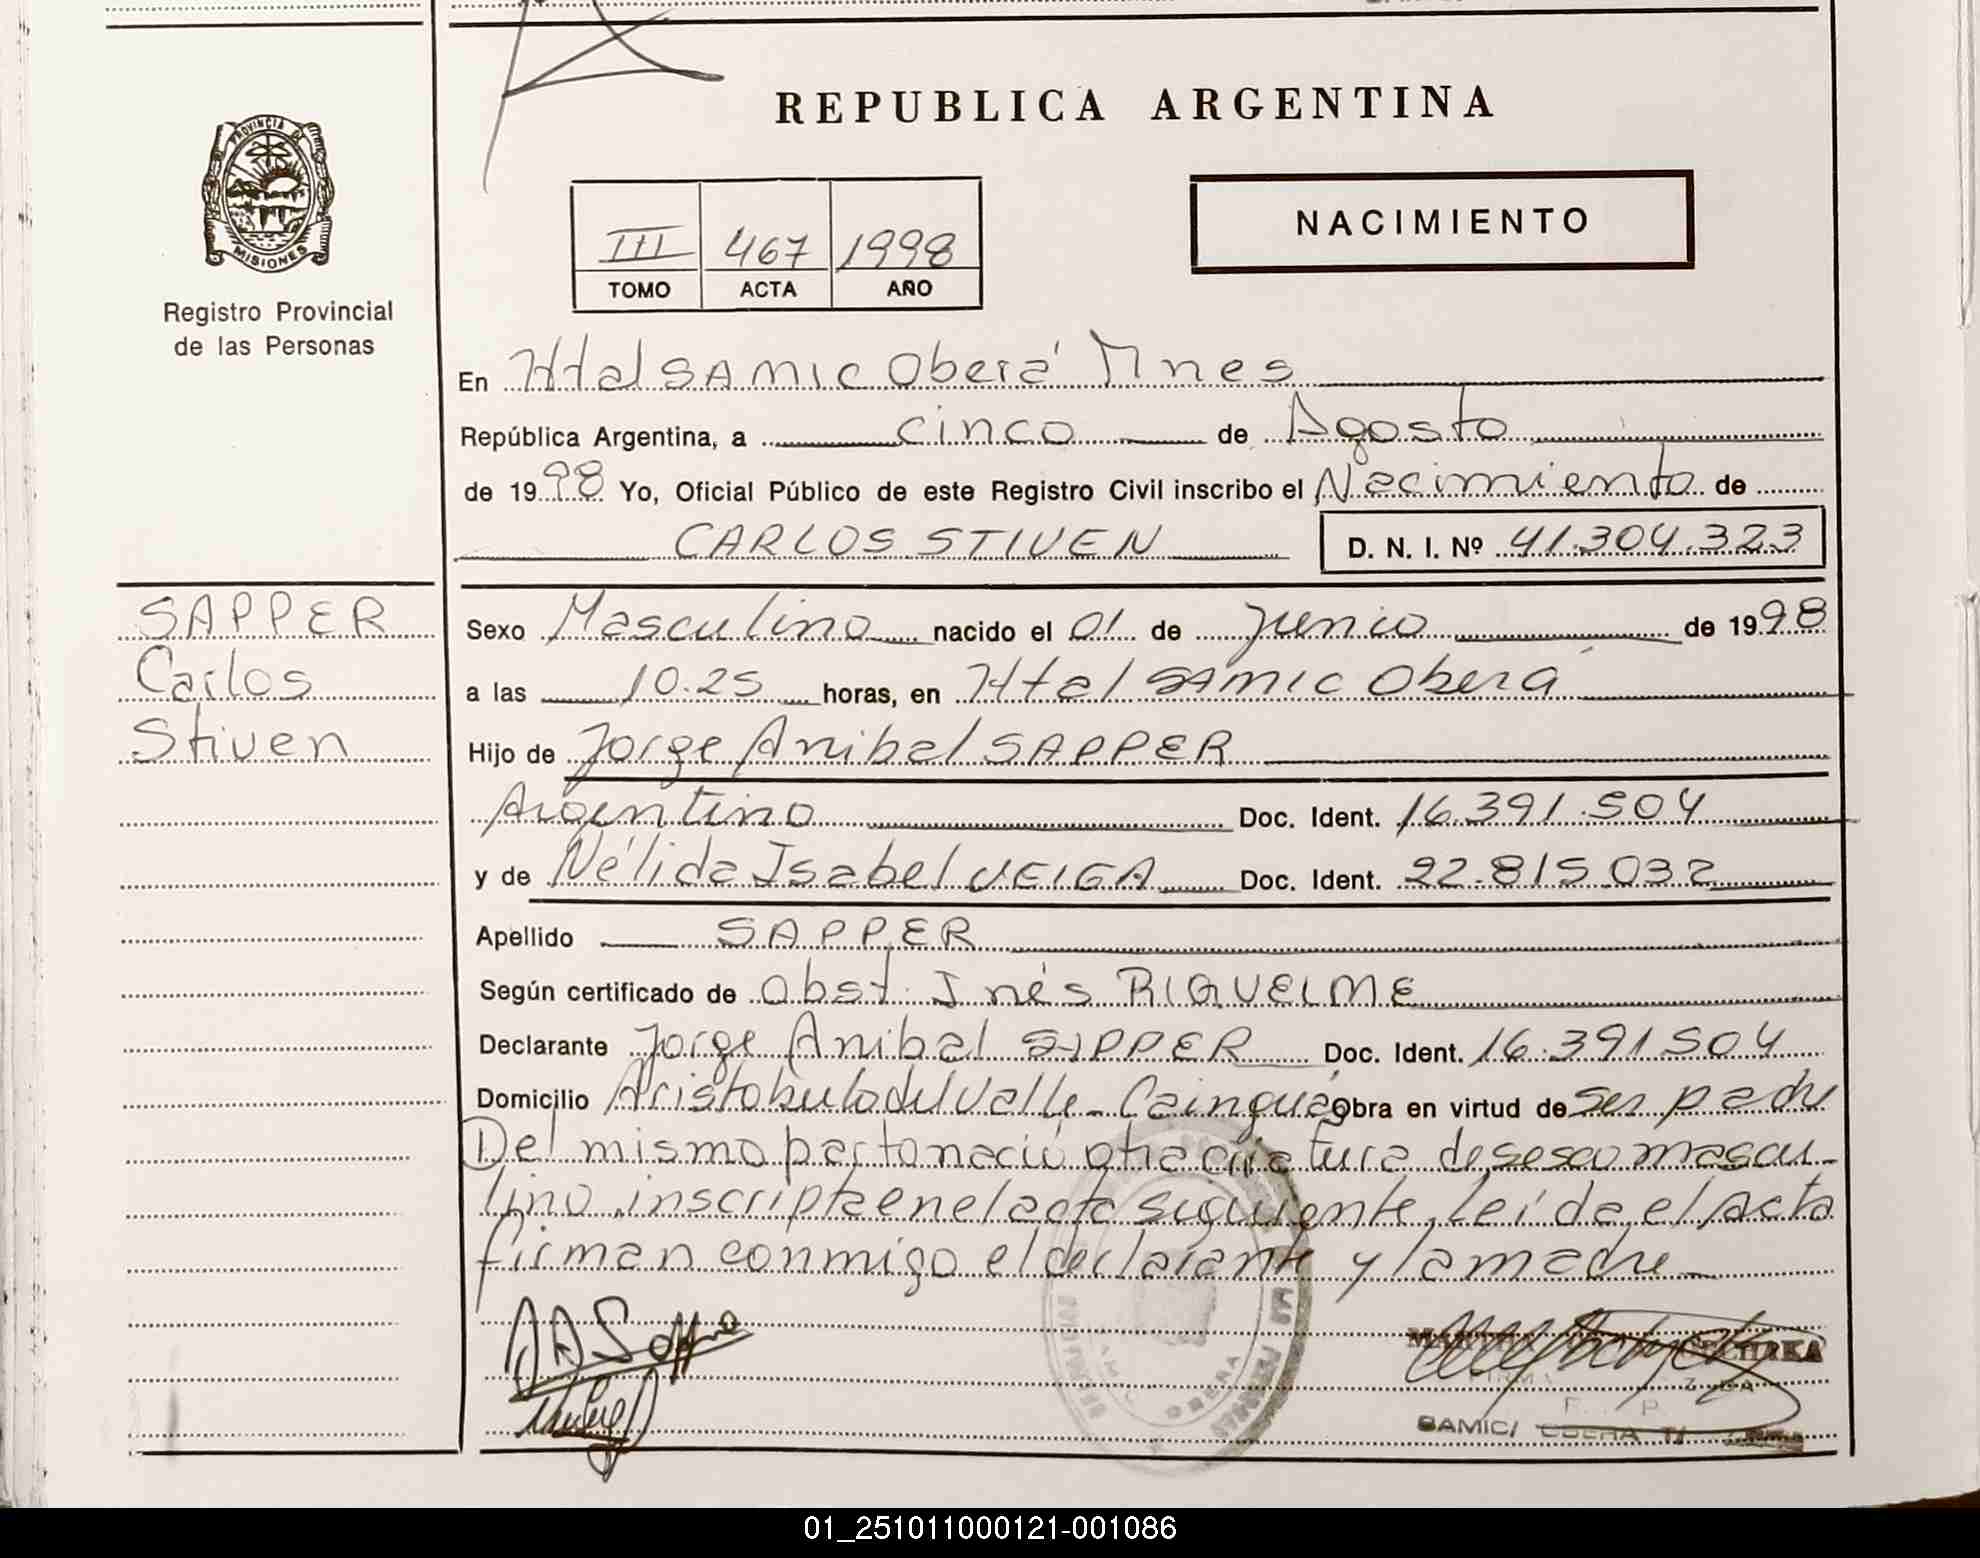 REPUBLICA ARGENTINA
PROVINCIA D
MISIONES
Registro Provincial
de las Personas
III 467 1998
TOMO ACTA AÑO
NACIMIENTO
En Htal SAMIC Oberá Mnes
República Argentina, a cinco de Agosto
de 1998 Yo, Oficial Público de este Registro Civil inscribo el Nacimiento de
CARLOS STIVEN D. N. I. Nº 41.304.323
SAPPER
Carlos
Stiven
Sexo Masculino nacido el 01 de Junio de 1998
a las 10.25 horas, en Htal SAMIC Oberá
Hijo de Jorge Anibal SAPPER
Argentino Doc. Ident. 16.391.504
y de Nélida Isabel VEIGA Doc. Ident. 22.815.032
Apellido SAPPER
Según certificado de Obst. Inés RIQUELME
Declarante Jorge Anibal SAPPER Doc. Ident. 16.391504
Domicilio Aristobulo del Valle - Cainguás Obra en virtud de ser padre
Del mismo parto nació otra criatura de sexo mascu-
lino, inscripta en el acta siguiente, leída el Acta
firman conmigo el declarante y la madre
OBERA
SAMIC/
01_251011000121-001086